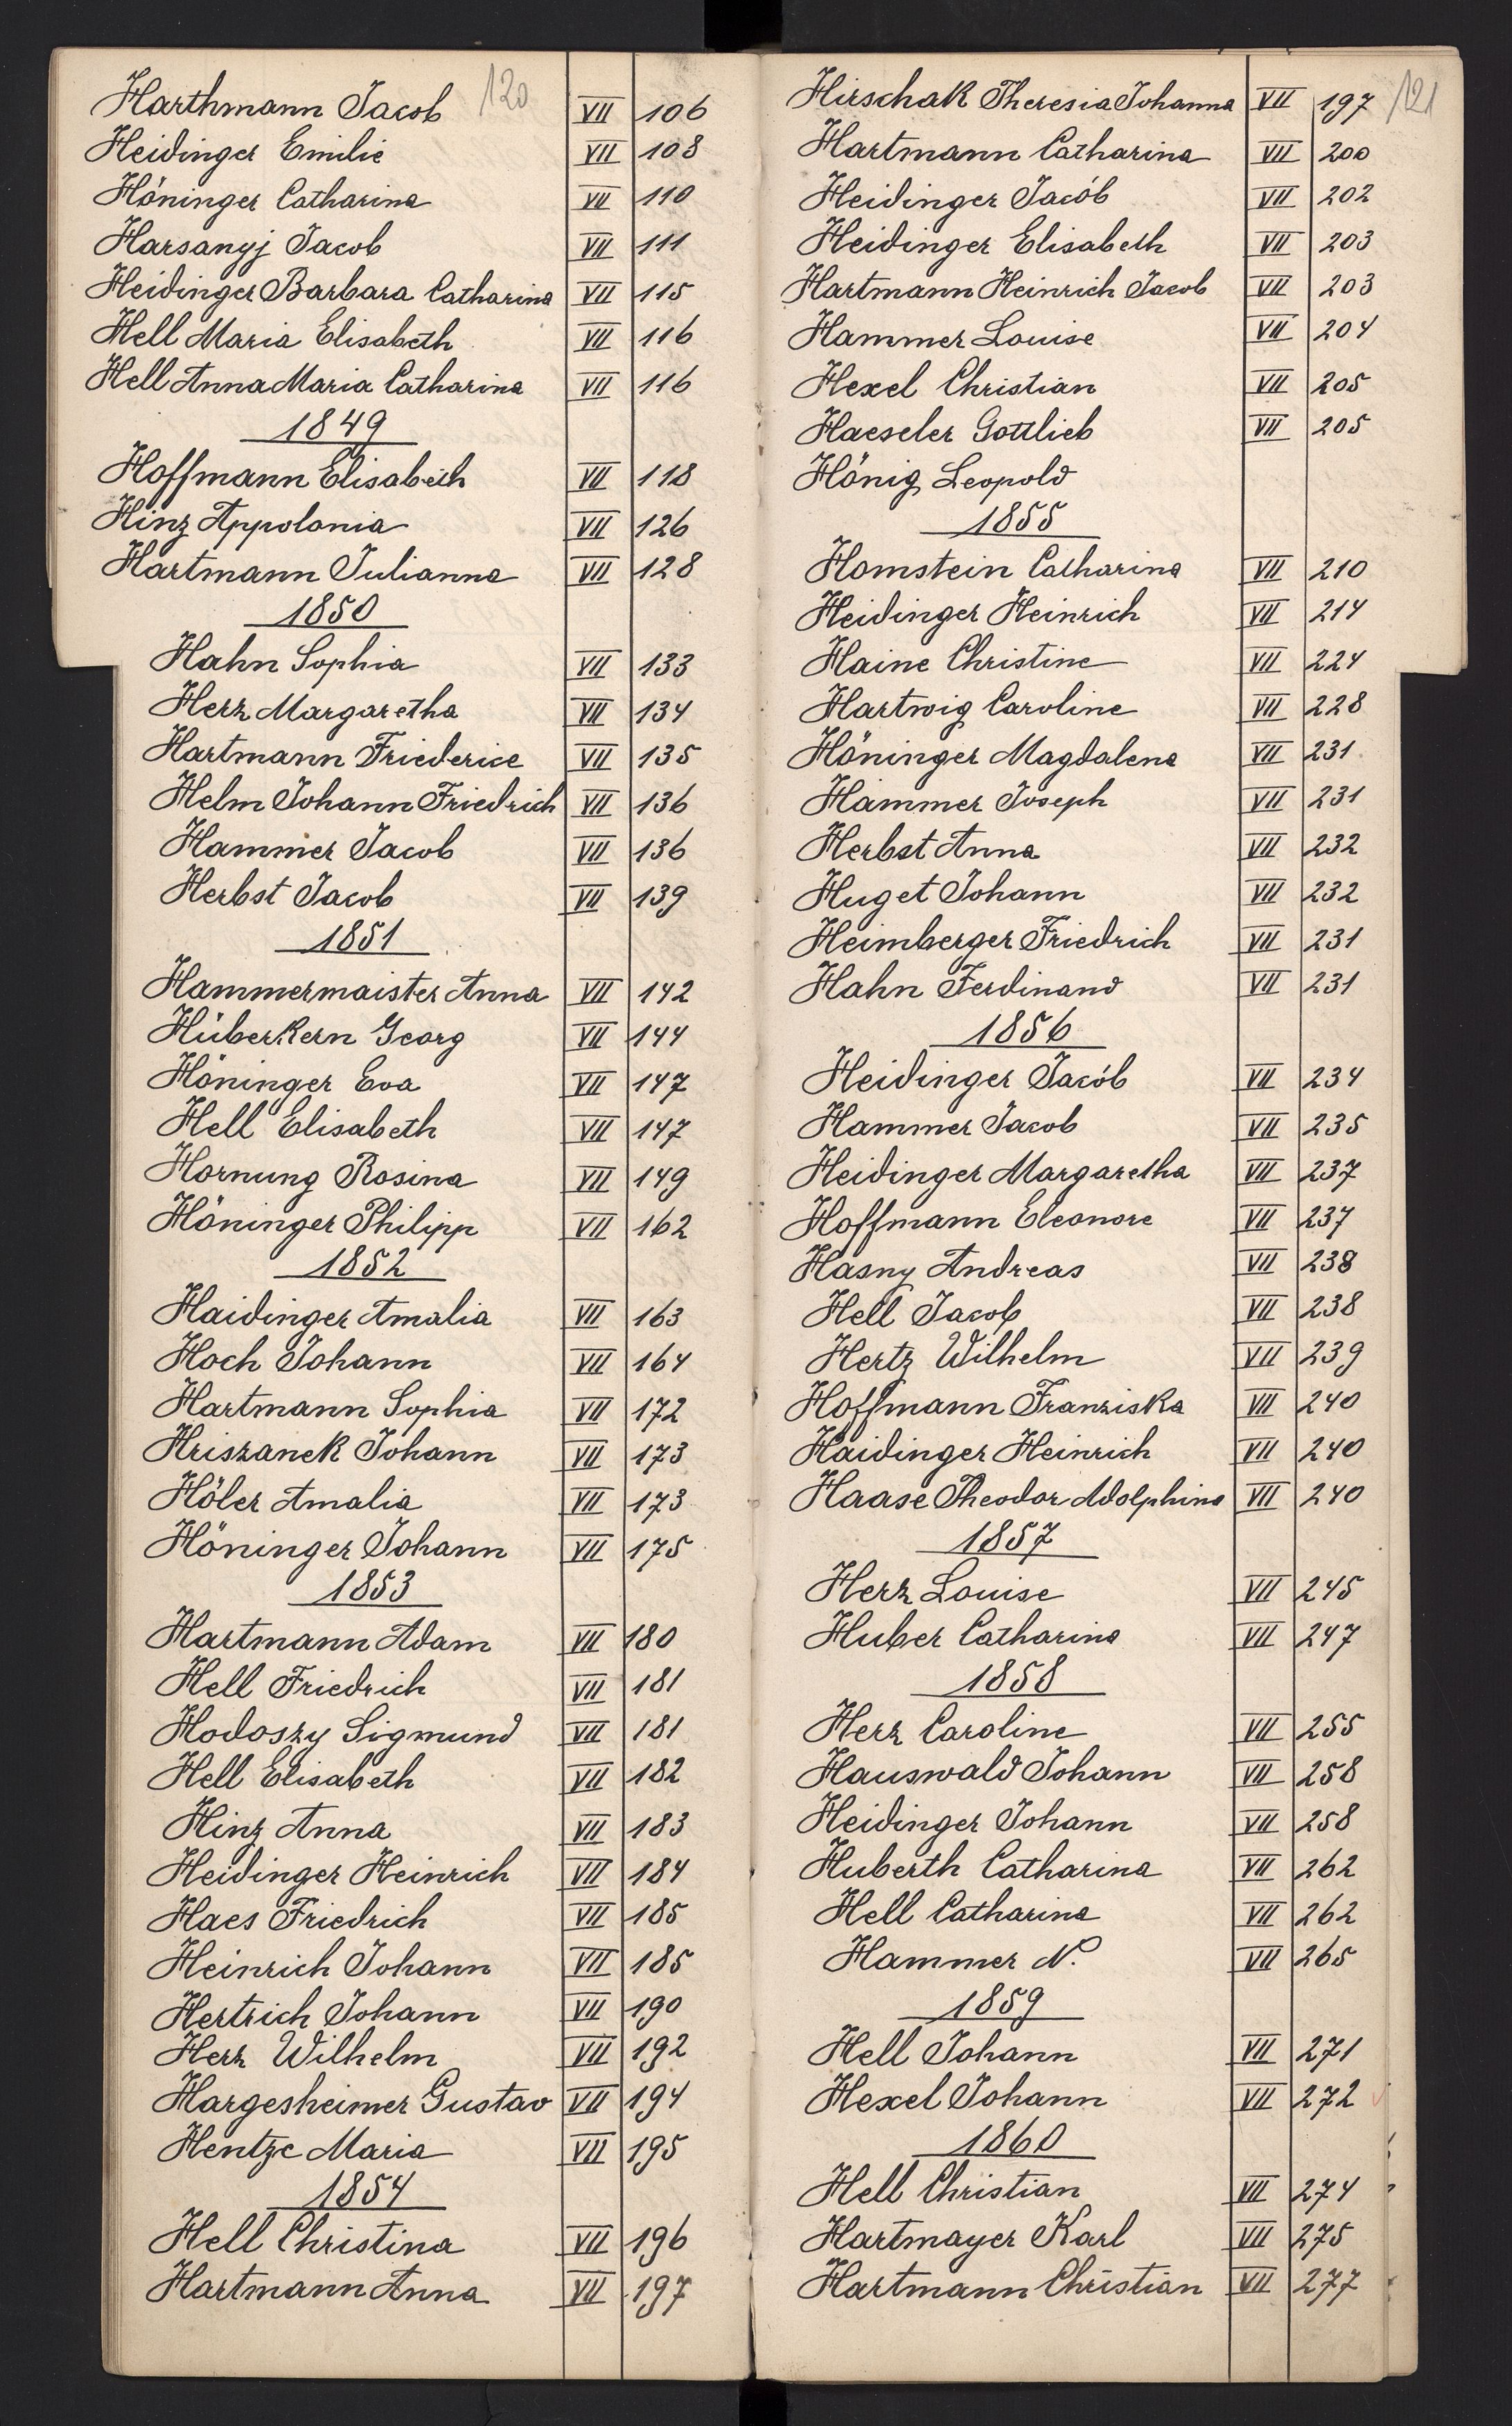 120
Harthmann Jacob VII 106
Heidinger Emilie VII 108
Höninger Catharina VII 110
Harsanyj Jacob VII 111
Heidinger Barbara Catharina VII 115
Hell Maria Elisabeth VII 116
Hell Anna Maria Catharina VII 116
1849
Hoffmann Elisabeth VII 118
Hinz Appolonia VII 126
Hartmann Julianna VII 128
1850
Hahn Sophia VII 133
Herz Margaretha VII 134
Hartmann Friederice VII 135
Helm Johann Friedrich VII 136
Hammer Jacob VII 136
Herbst Jacob VII 139
1851
Hammermaister Anna VII 142
Hüberkern Georg VII 144
Höninger Eva VII 147
Hell Elisabeth VII 147
Hornung Rosina VII 149
Höninger Philipp VII 162
1852
Haidinger Amalia VII 163
Hoch Johann VII 164
Hartmann Sophia VII 172
Hriszanek Johann VII 173
Höler Amalia VII 173
Höninger Johann VII 175
1853
Hartmann Adam VII 180
Hell Friedrich VII 181
Hodoszy Sigmund VII 181
Hell Elisabeth VII 182
Hinz Anna VII 183
Heidinger Heinrich VII 184
Haes Friedrich VII 185
Heinrich Johann VII 185
Hertrich Johann VII 190
Herz Wilhelm VII 192
Hargesheimer Gustav VII 194
Hentze Maria VII 195
1854
Hell Christina VII 196
Hartmann Anna VII 197
121
Hirschak Theresia Johanna VII 197
Hartmann Catharina VII 200
Heidinger Jacob VII 202
Heidinger Elisabeth VII 203
Hartmann Heinrich Jacob VII 203
Hammer Louise VII 204
Hexel Christian VII 205
Haeseler Gottlieb VII 205
Hönig Leopold
1855
Homstein Catharina VII 210
Heidinger Heinrich VII 214
Haine Christine VII 224
Hartwig Caroline VII 228
Höninger Magdalena VII 231
Hammer Joseph VII 231
Herbst Anna VII 232
Huget Johann VII 232
Heimberger Friedrich VII 231
Hahn Ferdinand VII 231
1856
Heidinger Jacob VII 234
Hammer Jacob VII 235
Heidinger Margaretha VII 237
Hoffmann Eleonore VII 237
Hasny Andreas VII 238
Hell Jacob VII 238
Hertz Wilhelm VII 239
Hoffmann Franziska VII 240
Haidinger Heinrich VII 240
Haase Theodor Adolphina VII 240
1857
Herz Louise VII 245
Huber Catharina VII 247
1858
Herz Caroline VII 255
Hauswald Johann VII 258
Heidinger Johann VII 258
Huberth Catharina VII 262
Hell Catharina VII 262
Hammer N. VII 265
1859
Hell Johann VII 271
Hexel Johann VII 272
1860
Hell Christian VII 274
Hartmayer Karl VII 275
Hartmann Christian VII 277